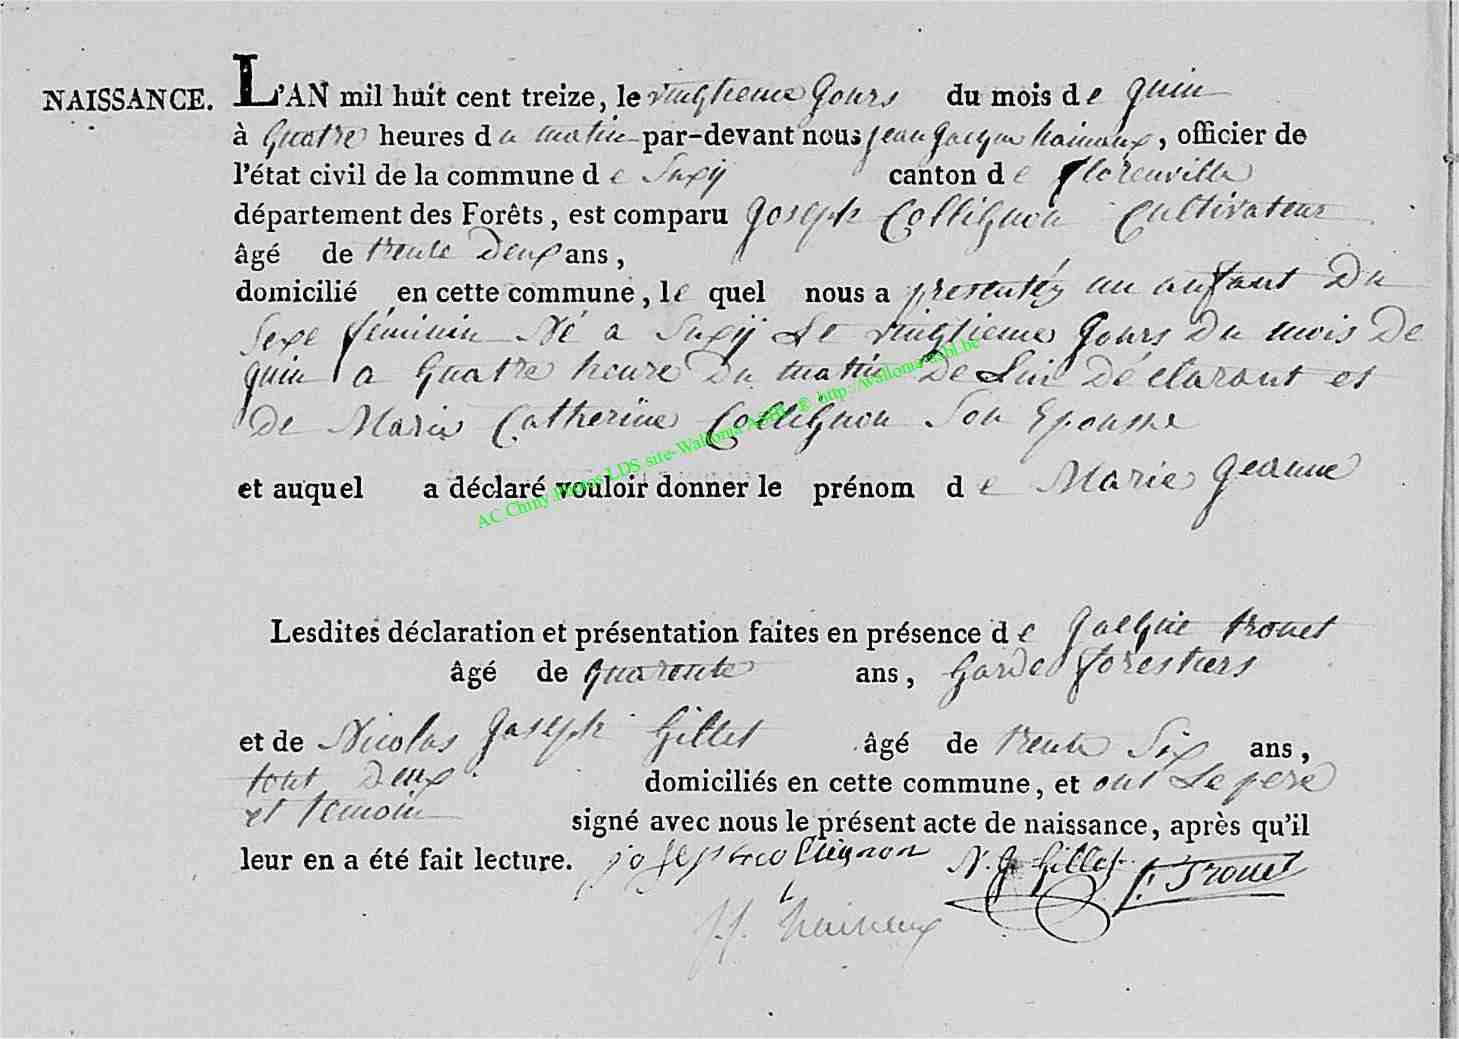 NAISSANCE. L'AN mil huit cent treize, le vingtieme Jours du mois de Juin
à Quatre heures du matin par-devant nous jean Jacque hainaux, officier de
l'état civil de la commune de Suxÿ canton de florenville
département des Forêts, est comparu Joseph Collignon Cultivateur
âgé de trente Deux ans,
domicilié en cette commune, le quel nous a presentéz un anfant Du
Sexe féminin Né a Suxÿ Le vingtieme Jours Du mois De
Juin a Quatre heure Du matin De Lui Déclarant et
De Marie Catherine Collignon Son Epousse
et auquel a déclaré vouloir donner le prénom de Marie Jeanne
AC Chiny Photos LDS site-Wallonia ASBL ® http://wallonia-asbl.be
Lesdites déclaration et présentation faites en présence de Jacque trouet
âgé de Quarente ans, Garde forestiers
et de Nicolas Joseph Gillet âgé de trente Six ans,
tout Deux domiciliés en cette commune, et ont Le pere
et temoin signé avec nous le présent acte de naissance, après qu'il
leur en a été fait lecture. joseph collignon N. J Gillet J: Trouet
J. J. hainaux